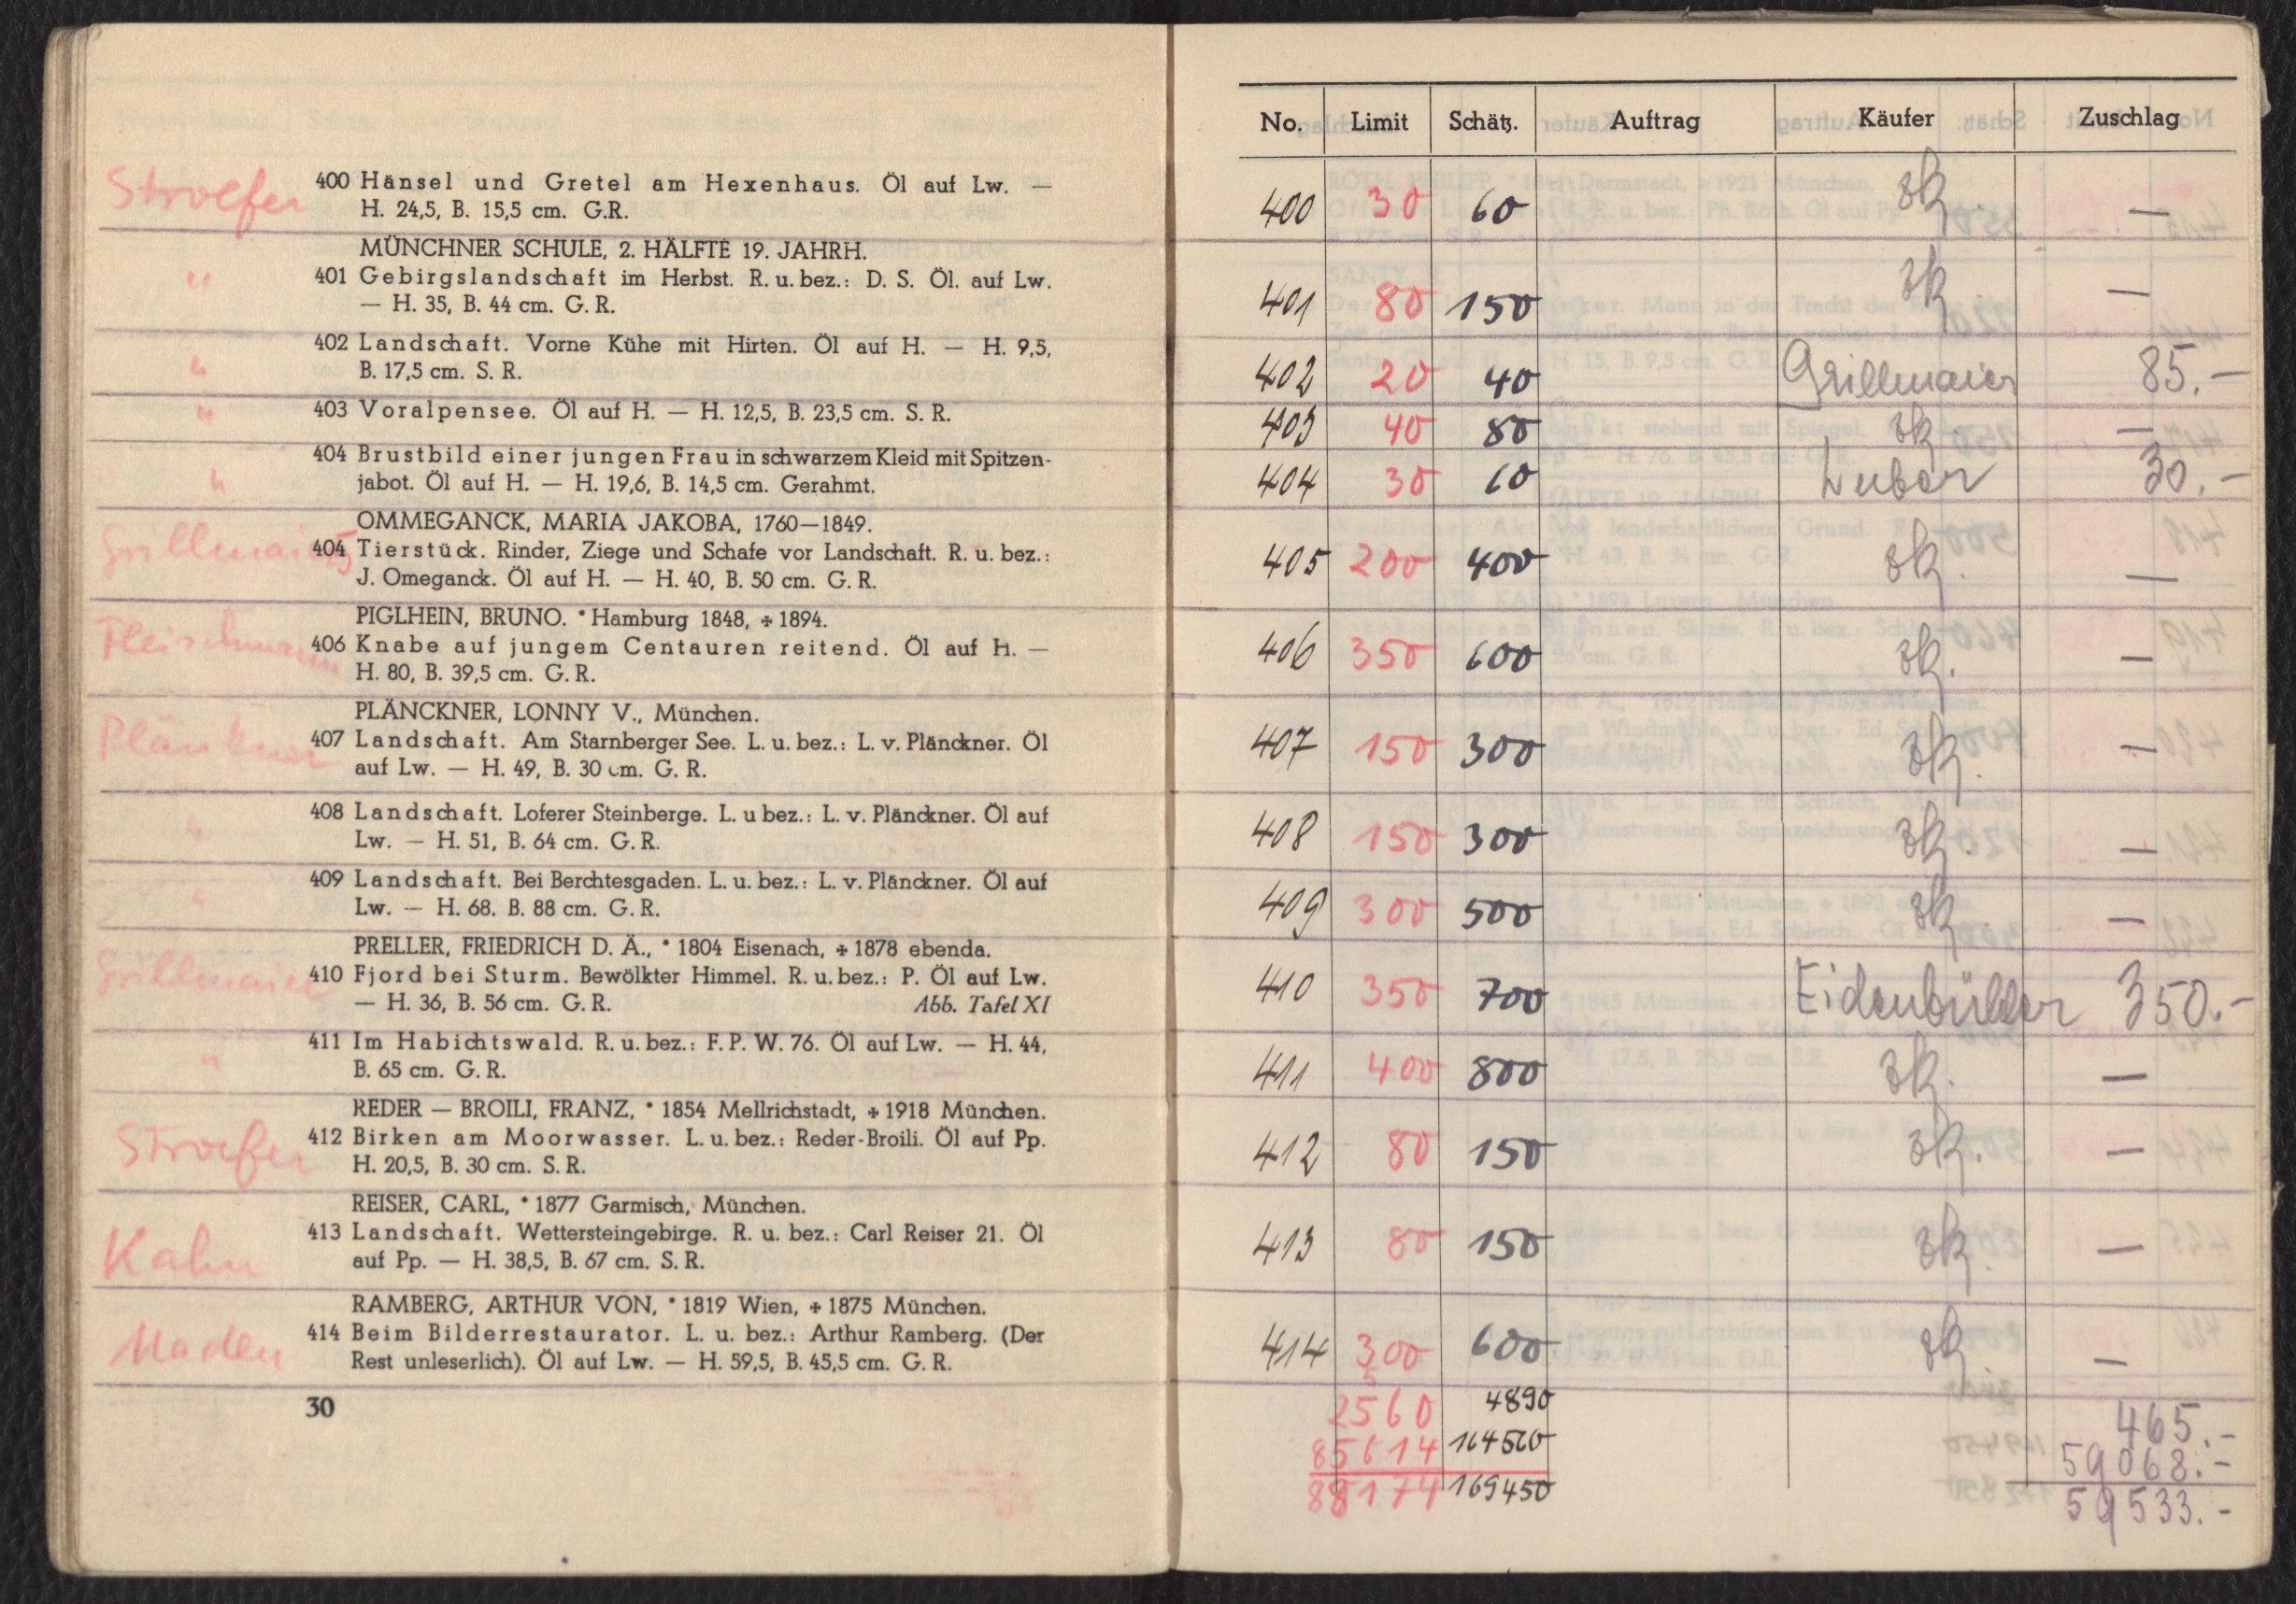 Stroefer
400 Hänsel und Gretel am Hexenhaus. Öl auf Lw. —
H. 24,5, B. 15,5 cm. G.R.
MÜNCHNER SCHULE, 2. HÄLFTE 19. JAHRH.
" 401 Gebirgslandschaft im Herbst. R. u. bez.: D. S. Öl. auf Lw.
— H. 35, B. 44 cm. G. R.
402 Landschaft. Vorne Kühe mit Hirten. Öl auf H. — H. 9,5,
" B. 17,5 cm. S. R.
" 403 Voralpensee. Öl auf H. — H. 12,5, B. 23,5 cm. S. R.
404 Brustbild einer jungen Frau in schwarzem Kleid mit Spitzen-
" jabot. Öl auf H. — H. 19,6, B. 14,5 cm. Gerahmt.
OMMEGANCK, MARIA JAKOBA, 1760—1849.
Grillmaier 404 5 Tierstück. Rinder, Ziege und Schafe vor Landschaft. R. u. bez.:
J. Omeganck. Öl auf H. — H. 40, B. 50 cm. G. R.
PIGLHEIN, BRUNO. * Hamburg 1848, + 1894.
Fleischmann 406 Knabe auf jungem Centauren reitend. Öl auf H. —
H. 80, B. 39,5 cm. G. R.
PLÄNCKNER, LONNY V., München.
Plänckner 407 Landschaft. Am Starnberger See. L. u. bez.: L. v. Plänckner. Öl
auf Lw. — H. 49, B. 30 cm. G. R.
" 408 Landschaft. Loferer Steinberge. L. u bez.: L. v. Plänckner. Öl auf
Lw. — H. 51, B. 64 cm. G. R.
" 409 Landschaft. Bei Berchtesgaden. L. u. bez.: L. v. Plänckner. Öl auf
Lw. — H. 68. B. 88 cm. G. R.
PRELLER, FRIEDRICH D. Ä., * 1804 Eisenach, + 1878 ebenda.
Grillmaier 410 Fjord bei Sturm. Bewölkter Himmel. R. u. bez.: P. Öl auf Lw.
— H. 36, B. 56 cm. G. R. Abb. Tafel XI
" 411 Im Habichtswald. R. u. bez.: F. P. W. 76. Öl auf Lw. — H. 44,
B. 65 cm. G. R.
REDER — BROILI, FRANZ, * 1854 Mellrichstadt, + 1918 München.
Stroefer 412 Birken am Moorwasser. L. u. bez.: Reder-Broili. Öl auf Pp.
H. 20,5, B. 30 cm. S. R.
REISER, CARL, * 1877 Garmisch, München.
Kahn 413 Landschaft. Wettersteingebirge. R. u. bez.: Carl Reiser 21. Öl
auf Pp. — H. 38,5, B. 67 cm. S. R.
RAMBERG, ARTHUR VON, * 1819 Wien, + 1875 München.
414 Beim Bilderrestaurator. L. u. bez.: Arthur Ramberg. (Der
Rest unleserlich). Öl auf Lw. — H. 59,5, B. 45,5 cm. G. R.
30
No. Limit Schätz. Auftrag Käufer Zuschlag
400 30 60 zk. —
401 80 150 zk —
402 20 40 Grillmaier 85.—
403 40 80 zk. —
404 30 60 Huber 30.—
405 200 400 zk. —
406 350 600 zk. —
407 150 300 zk. —
408 150 300 zk. —
409 300 500 zk —
410 350 700 Eidenbüller 350.—
411 400 800 zk. —
412 80 150 zk. —
413 80 150 zk. —
414 300 600 zk. —
2560 4890 465.—
85614 164560 59068.—
88174 169450 59533.—